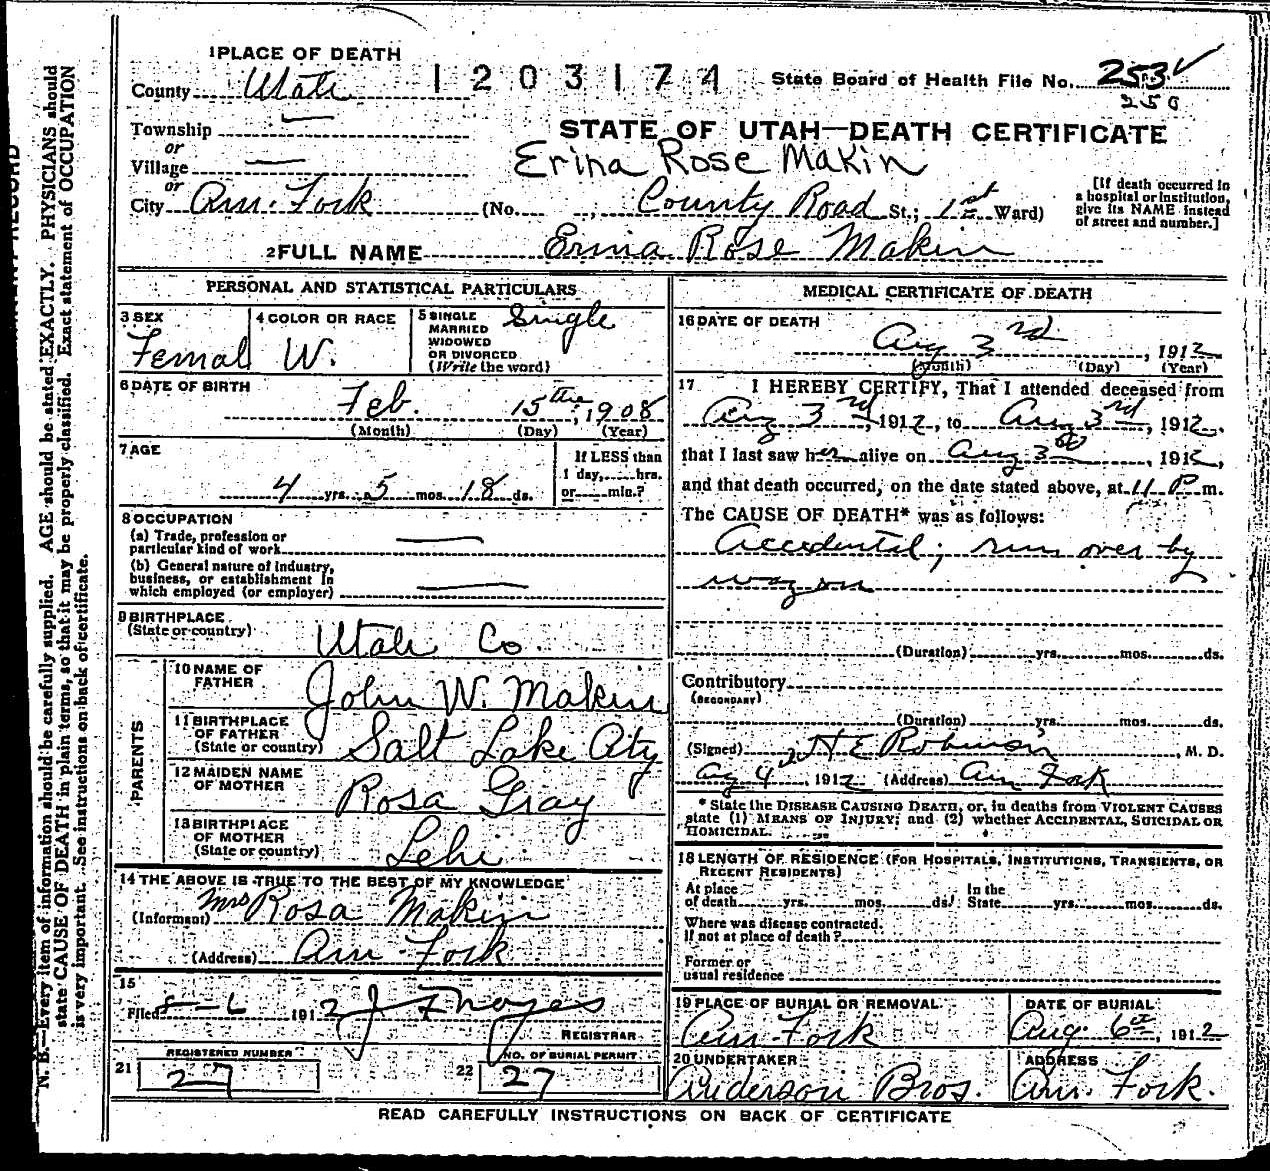 1 PLACE OF DEATH
County Utah
1203174
State Board of Health File No. 253
250
Township —
or
Village —
or
City Am. Fork
STATE OF UTAH—DEATH CERTIFICATE
Erina Rose Makin
(No. , County Road St.; 1st Ward)
[If death occurred in a hospital or institution, give its NAME instead of street and number.]
2 FULL NAME Erina Rose Makin
PERSONAL AND STATISTICAL PARTICULARS
3 SEX
Femal
4 COLOR OR RACE
W.
5 SINGLE
MARRIED
WIDOWED
OR DIVORCED
(Write the word)
Single
6 DATE OF BIRTH
Feb. 15th, 1908
(Month) (Day) (Year)
7 AGE
4 yrs. 5 mos. 18 ds.
If LESS than
1 day, hrs.
or min.?
8 OCCUPATION
(a) Trade, profession or
particular kind of work —
(b) General nature of industry,
business, or establishment in
which employed (or employer) —
9 BIRTHPLACE
(State or country) Utah Co.
PARENTS
10 NAME OF
FATHER
John W. Makin
11 BIRTHPLACE
OF FATHER
(State or country) Salt Lake City
12 MAIDEN NAME
OF MOTHER
Rosa Gray
13 BIRTHPLACE
OF MOTHER
(State or country) Lehi
14 THE ABOVE IS TRUE TO THE BEST OF MY KNOWLEDGE
(Informant) Mrs Rosa Makin
(Address) Am Fork
15
Filed 8-6 1912 J F Noyes
REGISTRAR
21
REGISTERED NUMBER
27
22
NO. OF BURIAL PERMIT
27
MEDICAL CERTIFICATE OF DEATH
16 DATE OF DEATH
Aug 3rd, 1912
(Month) (Day) (Year)
17 I HEREBY CERTIFY, That I attended deceased from
Aug 3rd, 1912, to Aug 3rd, 1912,
that I last saw her alive on Aug 3rd, 1912,
and that death occurred, on the date stated above, at 11 P m.
The CAUSE OF DEATH* was as follows:
Accidental; run over by
wagon
(Duration) yrs. mos. ds.
Contributory
(SECONDARY)
(Duration) yrs. mos. ds.
(Signed) H E Robinson, M. D.
Aug 4, 1912 (Address) Am Fork
* State the DISEASE CAUSING DEATH, or, in deaths from VIOLENT CAUSES
state (1) MEANS OF INJURY; and (2) whether ACCIDENTAL, SUICIDAL OR
HOMICIDAL.
18 LENGTH OF RESIDENCE (FOR HOSPITALS, INSTITUTIONS, TRANSIENTS, OR
RECENT RESIDENTS)
At place
of death yrs. mos. ds.
In the
State yrs. mos. ds.
Where was disease contracted.
If not at place of death?
Former or
usual residence
19 PLACE OF BURIAL OR REMOVAL
Am Fork
DATE OF BURIAL
Aug. 6th, 1912
20 UNDERTAKER
Anderson Bros.
ADDRESS
Am. Fork.
READ CAREFULLY INSTRUCTIONS ON BACK OF CERTIFICATE
N. B.—Every item of information should be carefully supplied. AGE should be stated EXACTLY. PHYSICIANS should
state CAUSE OF DEATH in plain terms, so that it may be properly classified. Exact statement of OCCUPATION
is very important. See instructions on back of certificate.